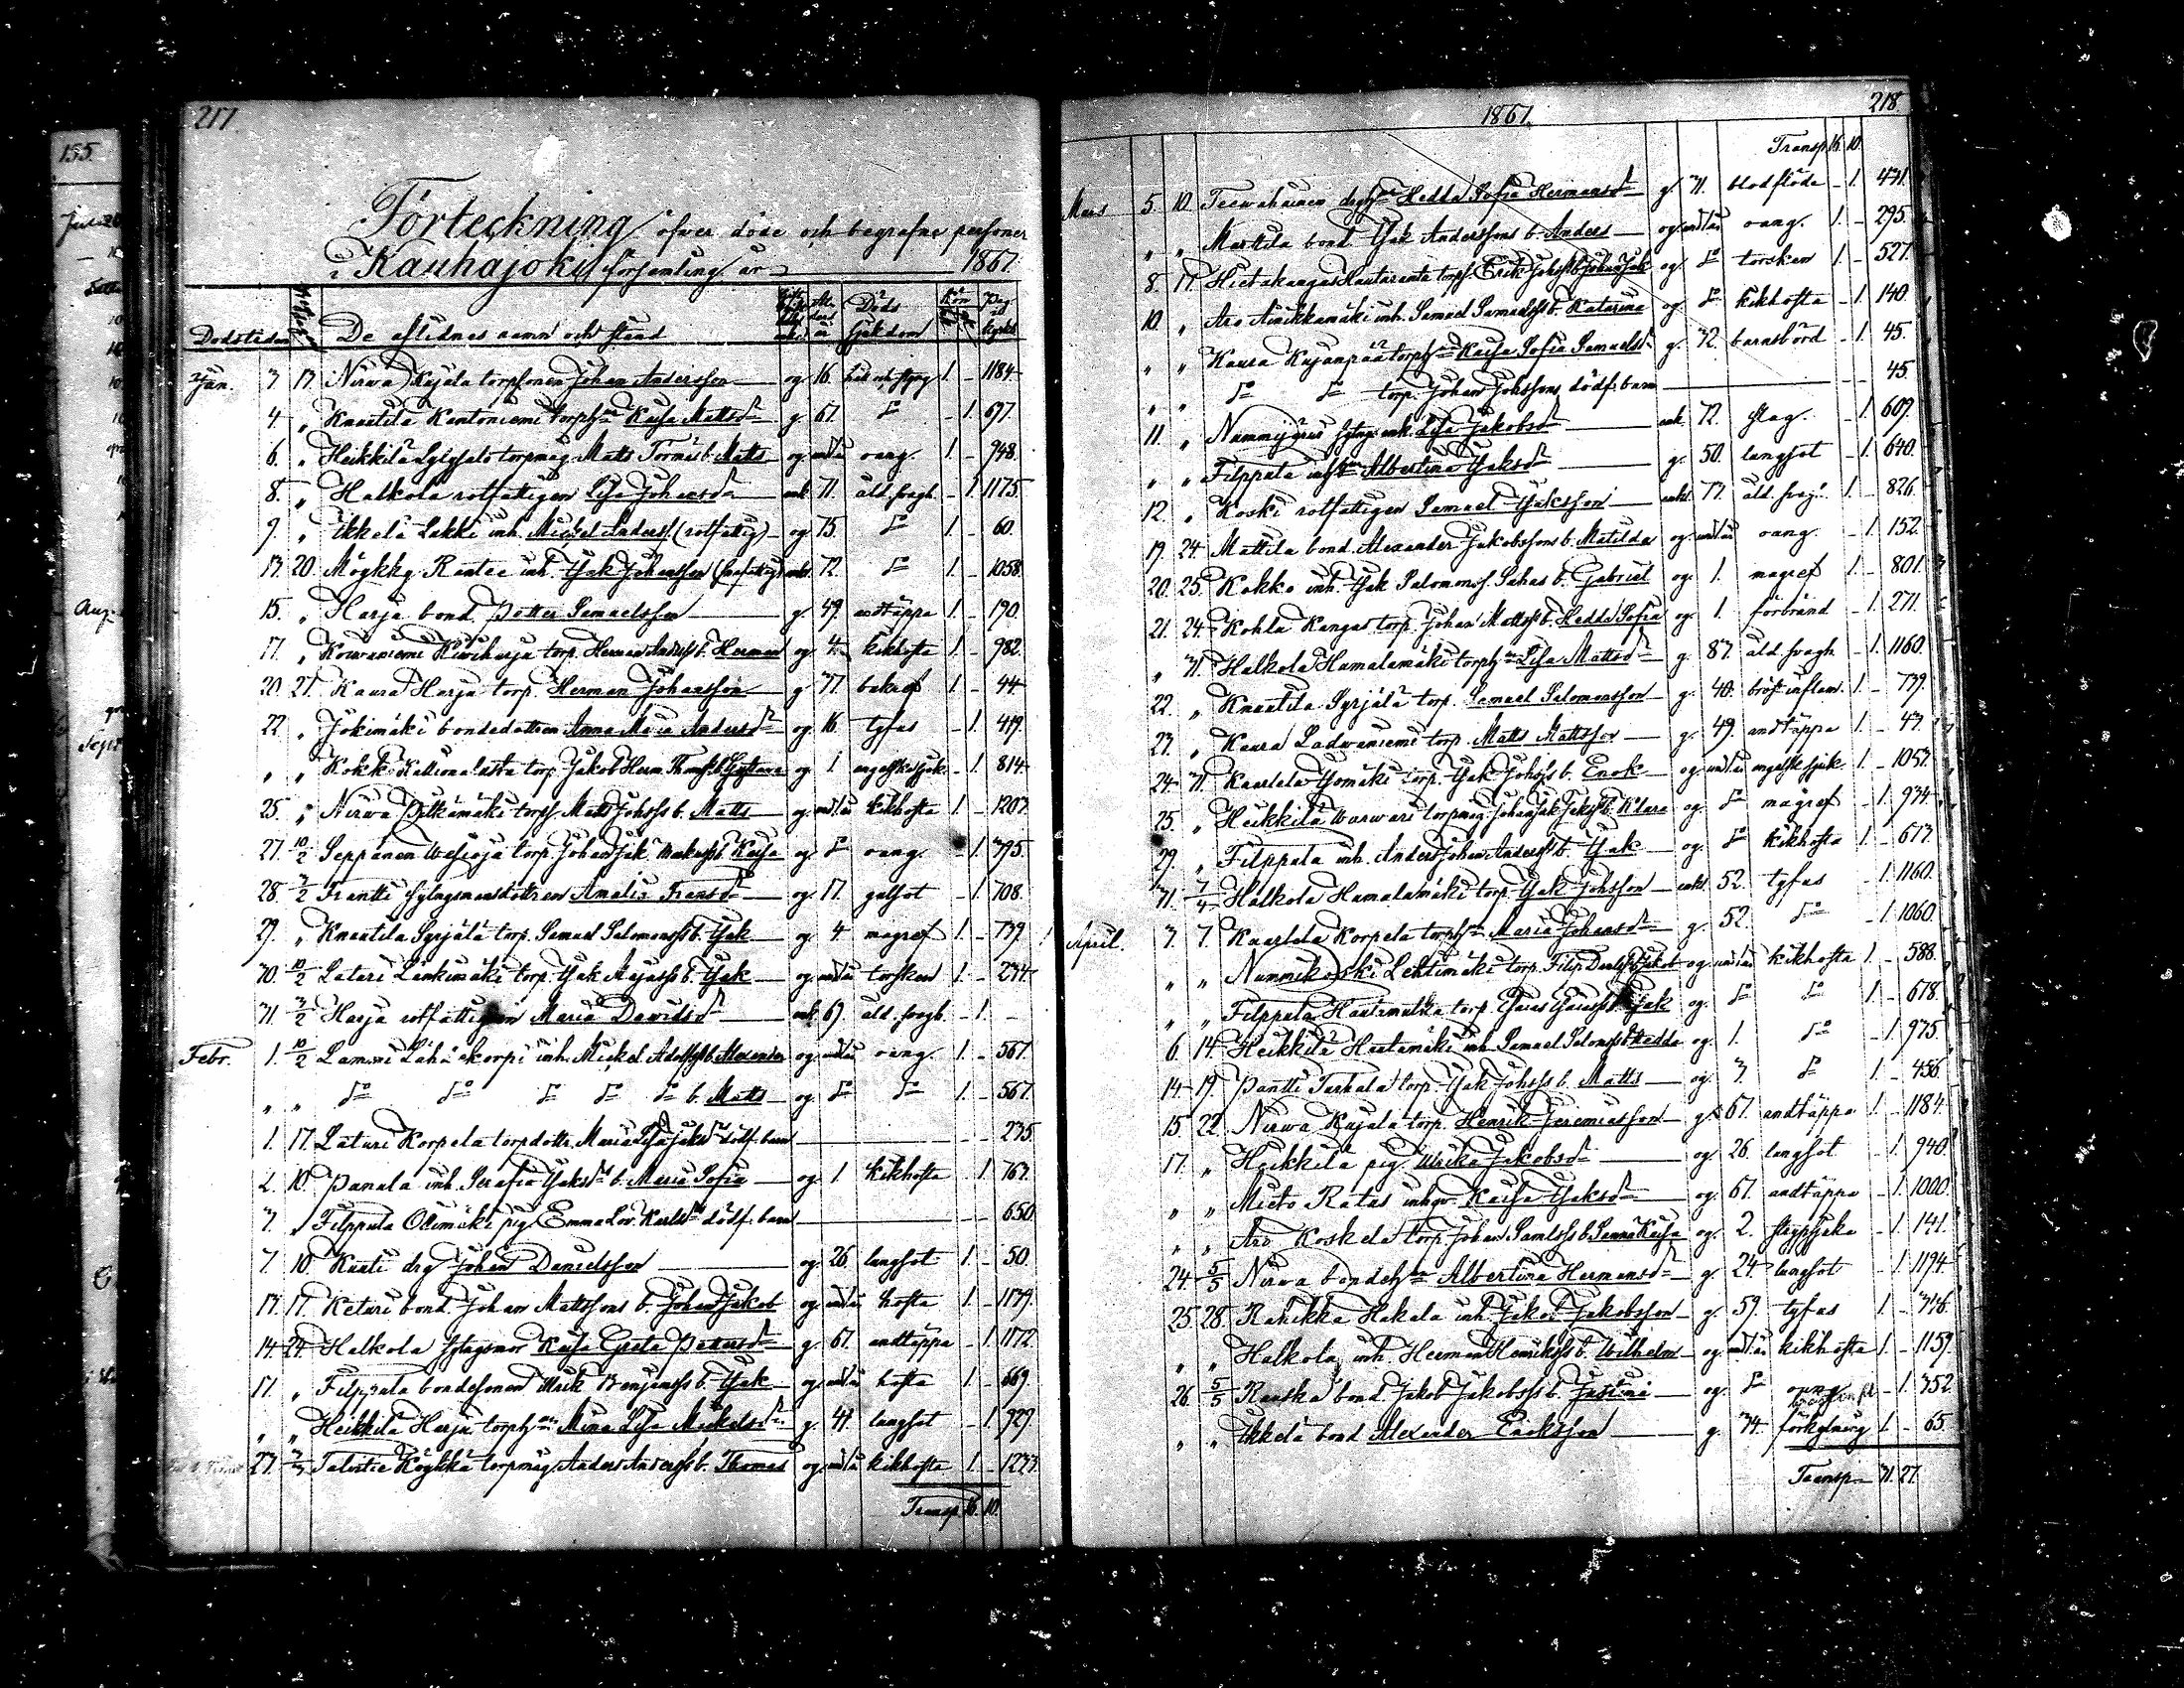 217
Förteckning öfver döde och begrafne personer
i Kauhajoki församling år 1867.
Dödstiden De aflidnes namn och stånd Döds sjukdom
Jan. 3 13. Nirwa Kujala torpsonen Johan Andersson og 16. 1. - 1184
4 „ Knuutila Kontoniemi torph:n Kaisa Mattsd:r g. 67. d:o - 1. 697.
6. „ Heikkilä Sysalo torpmåg Matts b. Matts og oang. 1. - 948.
8. „ Halkola rotfattigen Lisa Johansd:r enk. 71. åld. svagh. - 1. 1175.
9. „ Ikkela Lakki inh. Michel Anderss. (rotfattig) og 75. d:o 1. - 60.
13. 20. Möykky Rantee inh. Isak Johansson enkl. 72. d:o 1. - 1058.
15. „ Harja bond. Petter Samuelsson g. 49. andtäppa 1. - 190.
17. „ Korwaniemi Kiwiharja torp. Herman Anderss. b. Herman og 4 kikhosta 1. - 982.
20. 27. Kaura Harja torp. Herman Johansson g. 77. 1. - 44.
22. „ Jokimäki bondedottren Anna Maria Andersd:r og. 16. tyfus - 1. 419.
„ „ Kokko Kattionalusta torp. Jakob Herm. b. Gustava og 1 engelska sjuk. - 1. 814.
25. „ Nirwa Pitkämäki torp. Matts Johss. b. Matts og. kikhosta 1. - 1207.
27. 10/2 Seppänen Wesioja torp. Johan Isak b. Kaisa og d:o oang. - 1. 395.
28. 3/2 Frantti sytingsmansdottren Amalia Fransd:r og. 17. gulsot - 1. 708.
29. „ Knuutila Syrjälä torp. Samuel Salomonss. b. Isak og. 4 magref 1. - 739.
30. 10/2 Laturi Länkimäki torp. Isak b. Isak og. torsken 1. - 234.
31. 3/2 Harja rotfattigen Maria Davidsd:r enk. 69. åld. svagh. - 1. -
Febr. 1. 10/2 Lammi Lähäkorpi inh. Mickel Adolfss. b. Alexander og oang. 1. - 567.
„ „ d:o d:o d:o d:o d:o b. Matts og. d:o d:o 1. - 567.
1. 17. Laturi Korpela torpdottr. Maria Lisa Isaksd:rs dödf. barn - - 235
2. 10. Panula inh. Serafia Isaksd:r b. Maria Sofia og. 1 kikhosta - 1 763.
3. „ Filppula Ollimäki pig. Emma Lov. Karlsd:rs dödf. barn - - 650
7. 10. Kauti drg Johan Danielsson og. 26. lungsot 1. - 50.
13. 17. Keturi bond. Johan Mattssons b. Johan Jakob og. hosta 1. - 1139.
14. 24. Halkola sytingsmor Kaisa Greta Pettersd:r g. 67. andtäppa - 1. 1172.
17. „ Filppula bondesonen Ulrik Benjamss. b. Isak og. hosta 1. - 669.
„ „ Heikkilä Harja torph:n Mina Lisa Mickelsd:r g. 47. lungsot - 1. 929.
27. 3/3 Talvitie Köykkä torpmåg Anders Anderss. b. Thomas og. kikhosta 1. - 1233.
Transp. 16. 10.
1867. 218
Transp. 16. 10.
Mars 5. 10. Teewahainen Hedda Sofia Hermansd:r g. 31. blodflöde - 1. 431.
„ „ Marttila bond. Isak Anderssons b. Anders og. oang. 1. - 295.
8. 17. Hietakangas Hautaranta torp. Erik Johss. b. Johan Isak og. d:o torsken 1. - 527.
10. „ Aro Ainikkamäki inh. Samuel Samuelss. b. Katarina og. d:o kikhosta - 1. 140.
„ „ Kaura Kujanpää torph:n Kaisa Sofia Samuelsd:r g. 32. barnsbörd - 1. 45.
„ „ d:o d:o torp. Johan Johssons dödf. barn - - 45.
11. „ Nummijärvi enk. Lisa Jakobsd:r enk. 72. slag. - 1. 609.
„ „ Filppula Albertina Isaksd:r g. 50. lungsot - 1. 640.
12. „ Koski rotfattigen Samuel Isaksson enkl. 77. åld. svag. 1. - 826.
19. 24. Mattila bond. Alexander Jakobssons b. Matilda og. oang. - 1. 152.
20. 25. Kokko inh. Isak Salomonss. b. Gabriel og. 1. magref 1. - 801.
21. 24. Kohla Kangas torp. Johan Mattss. b. Hedda Sofia og. 1. förbränd - 1. 271.
„ 31. Halkola Hamalamäki torph:n Lisa Mattsd:r g. 87. åld. svagh. - 1. 1160.
22. „ Knuutila Syrjälä torp. Samuel Salomonsson g. 40. bröst inflam. 1. - 739.
23. „ Kaura Ladwaniemi torp. Matts Mattsson g. 49. andtäppa 1. - 43.
24. 31. Kaarlela Isomäki torp. Isak Johss. b. Enok og. engelska sjuk. 1. - 1057.
25. „ Heikkilä Warwari torpmåg Johan Isak b. Klara og. d:o magref - 1. 934.
29. „ Filppula inh. Anders Johan Anderss. b. Isak og. d:o kikhosta 1. - 673.
31. 7/4 Halkola Hamalamäki torp. Isak Johsson enkl. 52. tyfus - 1. 1160.
April. 3. 7. Kaarlela Korpela torph:n Maria Johansd:r g. 52. d:o - 1. 1060.
„ „ Nummikoski Lehtimäki torp. Filip b. Jakob og. kikhosta 1. - 588.
„ „ Filppula Hautamulta torp. b. Isak og. d:o d:o 1. - 678.
6. 14. Heikkilä Hautamäki inh. Samuel Saloms. b. Hedda og. 1. d:o - 1. 975.
14. 19. Pantti Turhala torp. Isak Johss. b. Matts og. 3. d:o 1. - 456.
15. 22. Nirwa Kujala torp. Henrik Jeremiasson g. 67. andtäppa 1. - 1184.
17. „ Heikkilä pig. Ulrika Jakobsd:r og. 26. lungsot - 1. 940.
„ „ Mieto Ratas Kaisa Isaksd:r og. 67. andtäppa - 1. 1000.
„ „ Aro Koskela torp. Johan Samlss. b. Sanna Kaisa og. 2. strypsjuka - 1. 141.
24. 5/5 Nirwa bondeh:n Albertina Hermansd:r g. 24. lungsot - 1 1194.
25. 28. Rahikka Hakala inh. Jakob Jakobsson g. 59. tyfus 1. - 346.
„ „ Halkola inh. Herman Henrikss. b. Wilhelm og. kikhosta 1. - 1159.
26. 5/5 Rauska bond. Jakob Jakobss. b. Justina og. d:o oang. - 1. 352.
„ „ Ikkela bond. Alexander Eriksson g. 34. förkylning 1. - 65.
Transp. 31. 27.
155.
Aug.
Sept.